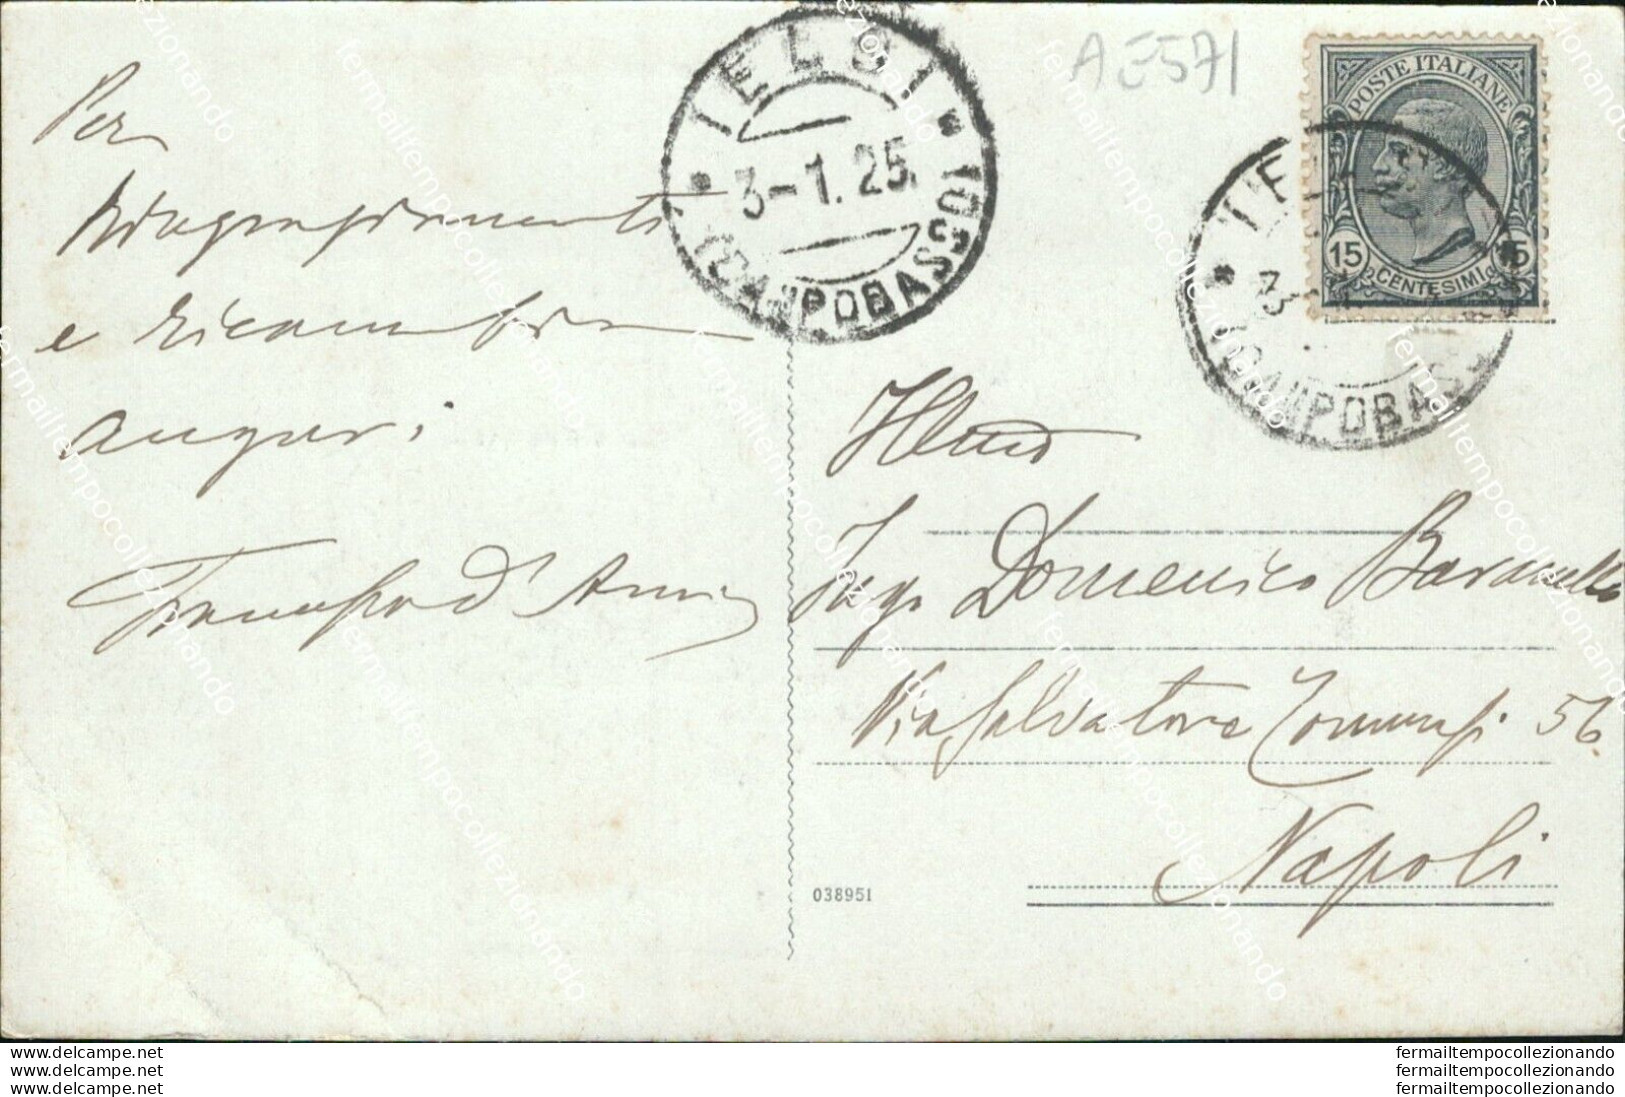 AE571
POSTE ITALIANE
15 15
CENTESIMI
IELSI
3-1.25
(CAMPOBASSO)
IE
3
(CAMPOBASS
Per
Ringraziamenti
e ricambia
auguri
d'Amico
Illmo
Sig. Domenico Baranello
Via Salvatore Tommasi 56
Napoli
038951
www.delcampe.net
www.delcampe.net
www.delcampe.net
fermailtempocollezionando
fermailtempocollezionando
fermailtempocollezionando